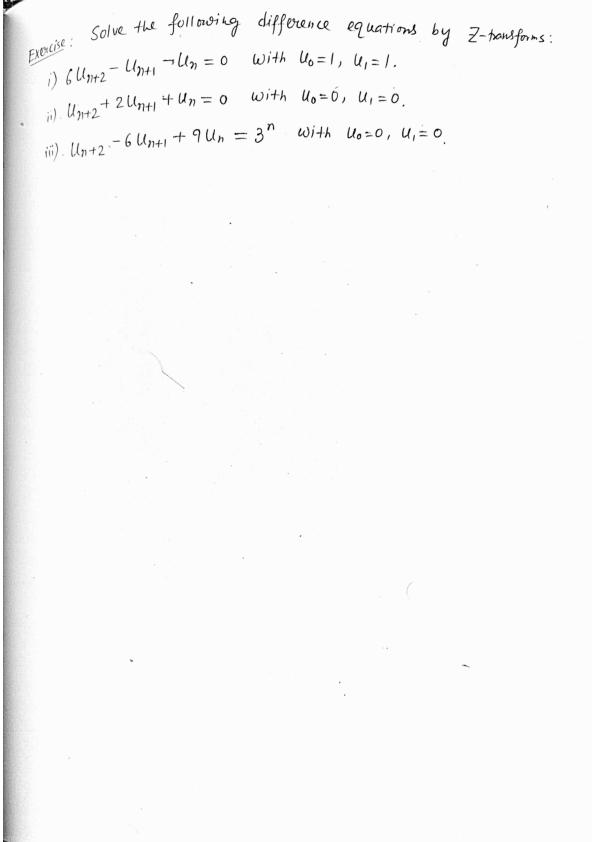 Exercise: Solve the following difference equations by Z-transforms:
i) 6Uₙ₊₂ - Uₙ₊₁ - Uₙ = 0 with U₀=1, U₁=1.
ii). Uₙ₊₂ + 2Uₙ₊₁ + Uₙ = 0 with U₀=0, U₁=0.
iii). Uₙ₊₂ - 6Uₙ₊₁ + 9Uₙ = 3ⁿ with U₀=0, U₁=0.